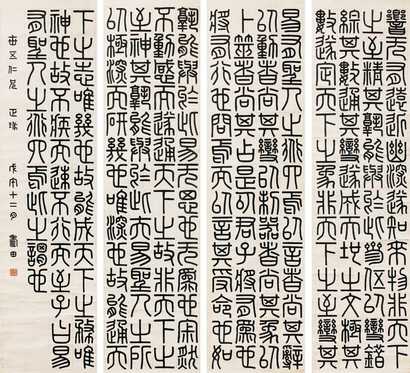 響无有遠近幽深遂知來物非天下
之至精其孰能與於此參伍以變錯
綜其數通其變遂成天地之文極其
數遂定天下之象非天下之至變其
易有聖人之道四焉以言者尚其辭
以動者尚其變以制器者尚其象以
卜筮者尚其占是以君子將有為也
將有行也問焉而以言其受命也如
孰能與於此易无思也无為也寂然
不動感而遂通天下之故非天下之
至神其孰能與於此夫易聖人之所
以極深而研幾也唯深也故能通天
下之志唯幾也故能成天下之務唯
神也故不疾而速不行而至子曰易
有聖人之道四焉此之謂也
五仁 正 十二月 田